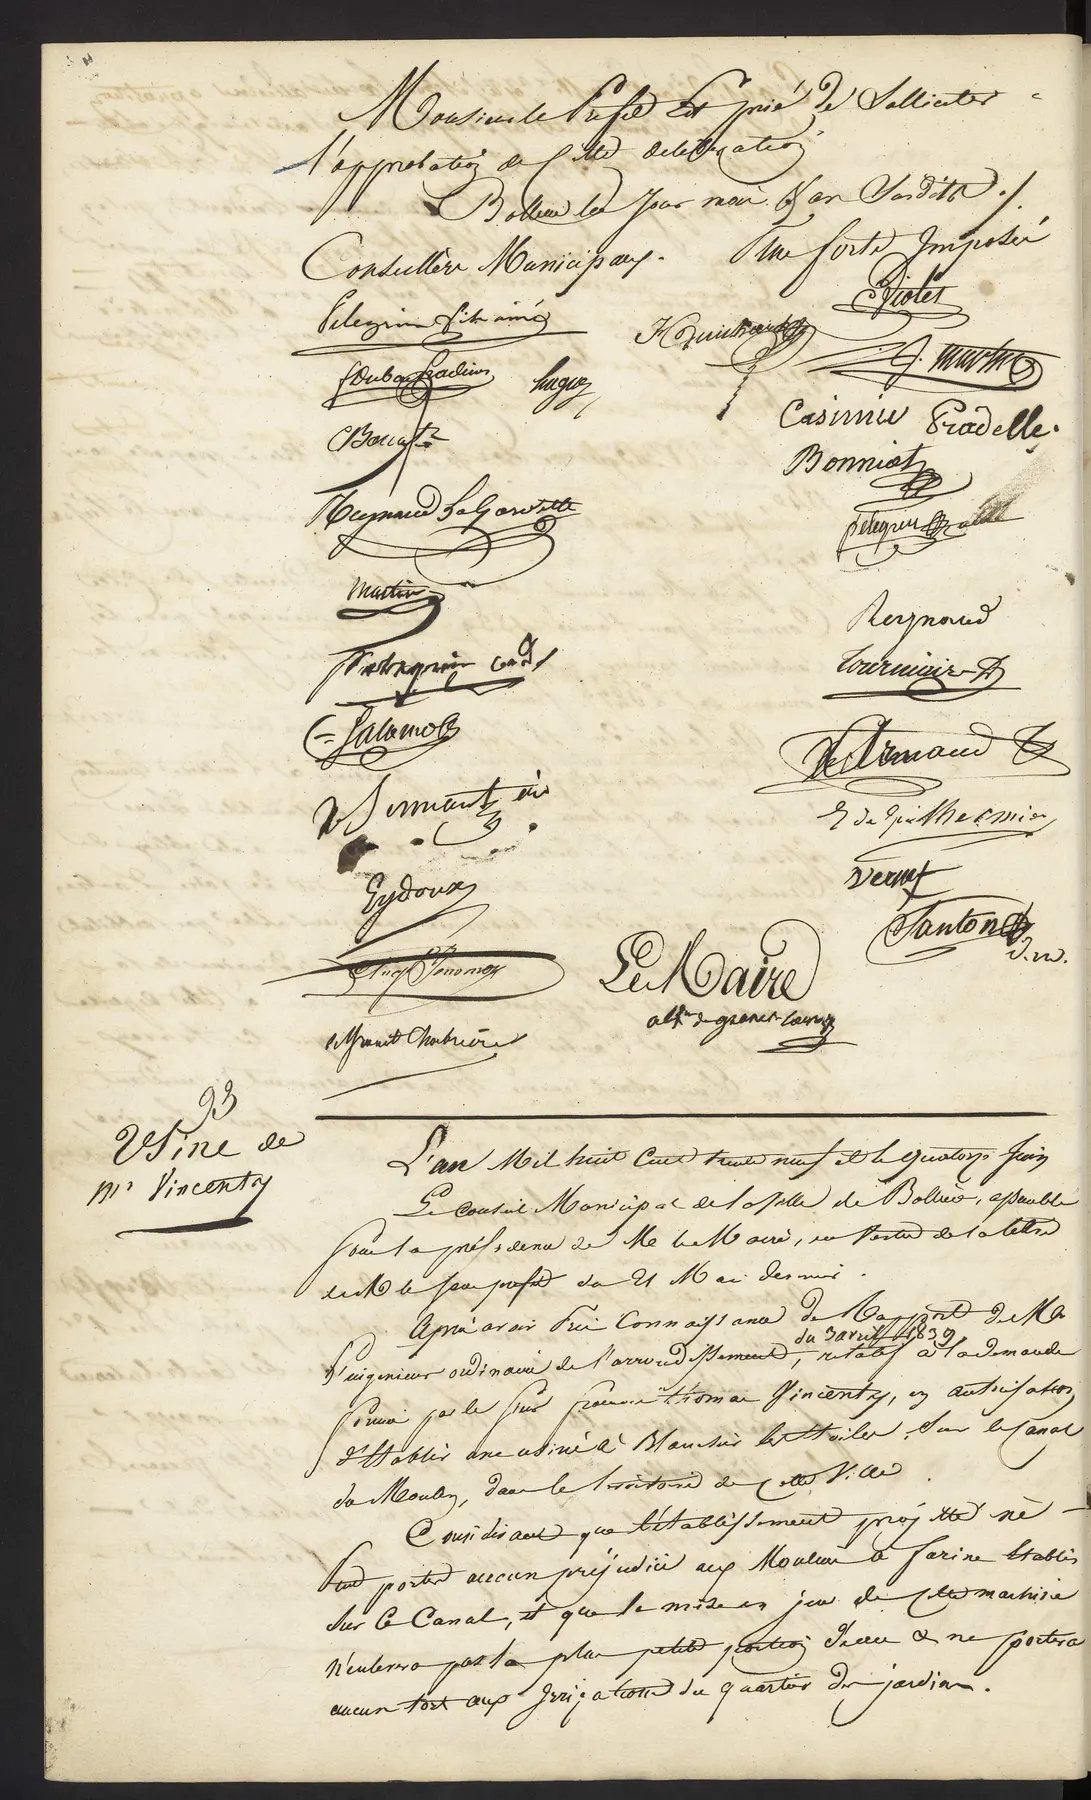 Monsieur le Préfet Est prié de Solliciter
l'approbation de Cette délibération
Bollène les jour mois & an Susdits ./.
Conseillers Municipaux. Plus forts Imposés
Pelegrin fils ainé
Violès
J. Martin
hugues
Casimir Pradelle.
Bonniot
Reynaud LaGardette
Pelegrin
Martin
Reynaud
Tournaire
Salamon
De Armand
Eydoux
Vernet
Santon
d. m.
Le Maire
Granet Chabrière
93
Usine de
Mr Vincenty
L'an Mil huit Cent trente neuf et le quatorze Juin
Le Conseil Municipal de la ville de Bollène, assemblé
sous la présidence de Mr le Maire, en vertu de la lettre
de Mr le sous préfet du 21 Mai dernier.
Après avoir Pris Connaissance du Rapport de Mr
du 3 avril 1839
l'ingénieur ordinaire de l'arrondissement, relatif à la demande
formée par le Sieur François thomas Vincenty, en autorisation
d'Etablir une usine à Blanchir les Etoiles, Sur le Canal
du Moulin, dans le territoire de Cette Ville.
Considérant que l'établissement projetté ne
Peut porter aucun préjudice aux Moulins à farine Etablis
Sur le Canal, et que la mise en jeu de Cette machine
n'enlevera pas la plus petite portion d'eau & ne portera
aucun tort aux Irrigations du quartier des jardins.